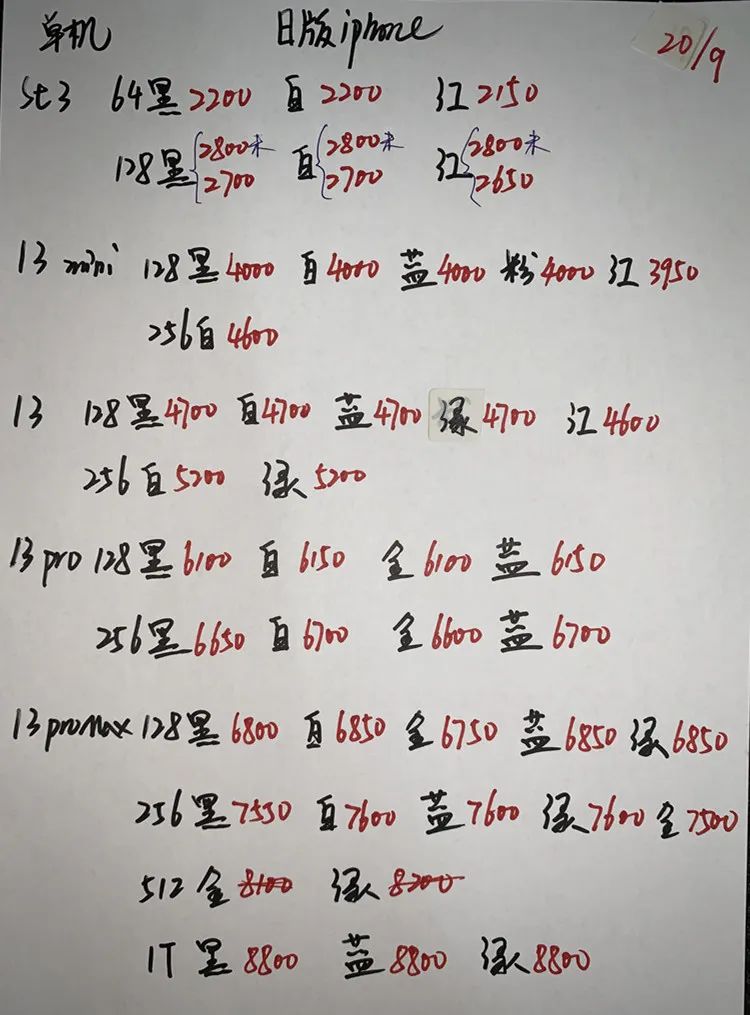 单机 日版iphone 20/9
se3 64黑2200 白2200 红2150
128黑{2800未 白{2800未 红{2800未
2700 2700 2650
13 mini 128黑4000 白4000 蓝4000 粉4000 红3950
256白4600
13 128黑4700 白4700 蓝4700 绿4700 红4600
256白5200 绿5200
13 pro 128黑6100 白6150 金6100 蓝6150
256黑6650 白6700 金6600 蓝6700
13 promax 128黑6800 白6850 金6750 蓝6850 绿6850
256黑7550 白7600 蓝7600 绿7600 金7500
512金8100 绿8200
1T黑8800 蓝8800 绿8800